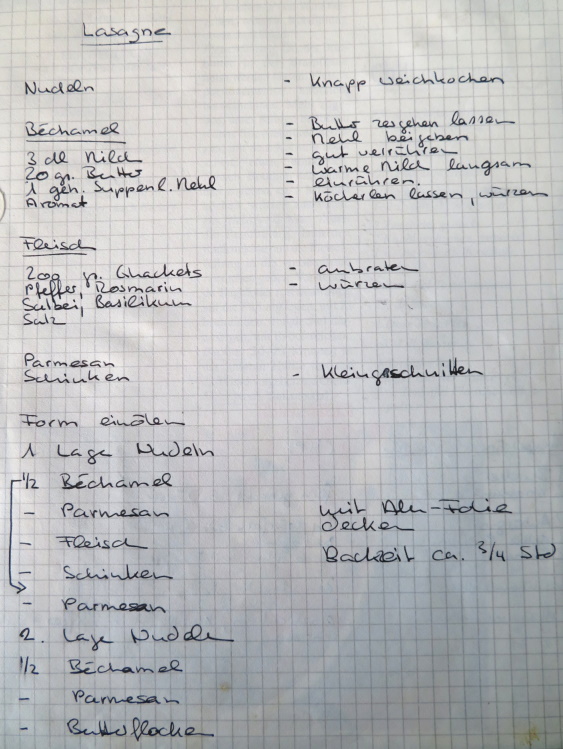 Lasagne
Nudeln - Knapp weichkochen
Béchamel - Butter zergehen lassen
- Mehl beigeben
3 dl Milch - gut verrühren
20 gr. Butter - warme Milch langsam
1 geh. Suppenl. Mehl - einrühren.
Aromat - Köcherlen lassen, würzen
Fleisch
200 g. Ghackets - anbraten
Pfeffer, Rosmarin - würzen
Salbei, Basilikum
Salz
Parmesan
Schinken - kleingeschnitten
Form einölen
1 Lage Nudeln
1/2 Béchamel
- Parmesan
- Fleisch
- Schinken
- Parmesan
2. Lage Nudeln
1/2 Béchamel
- Parmesan
- Butterflocken
mit Alu-Folie
decken
Backzeit ca. 3/4 Std